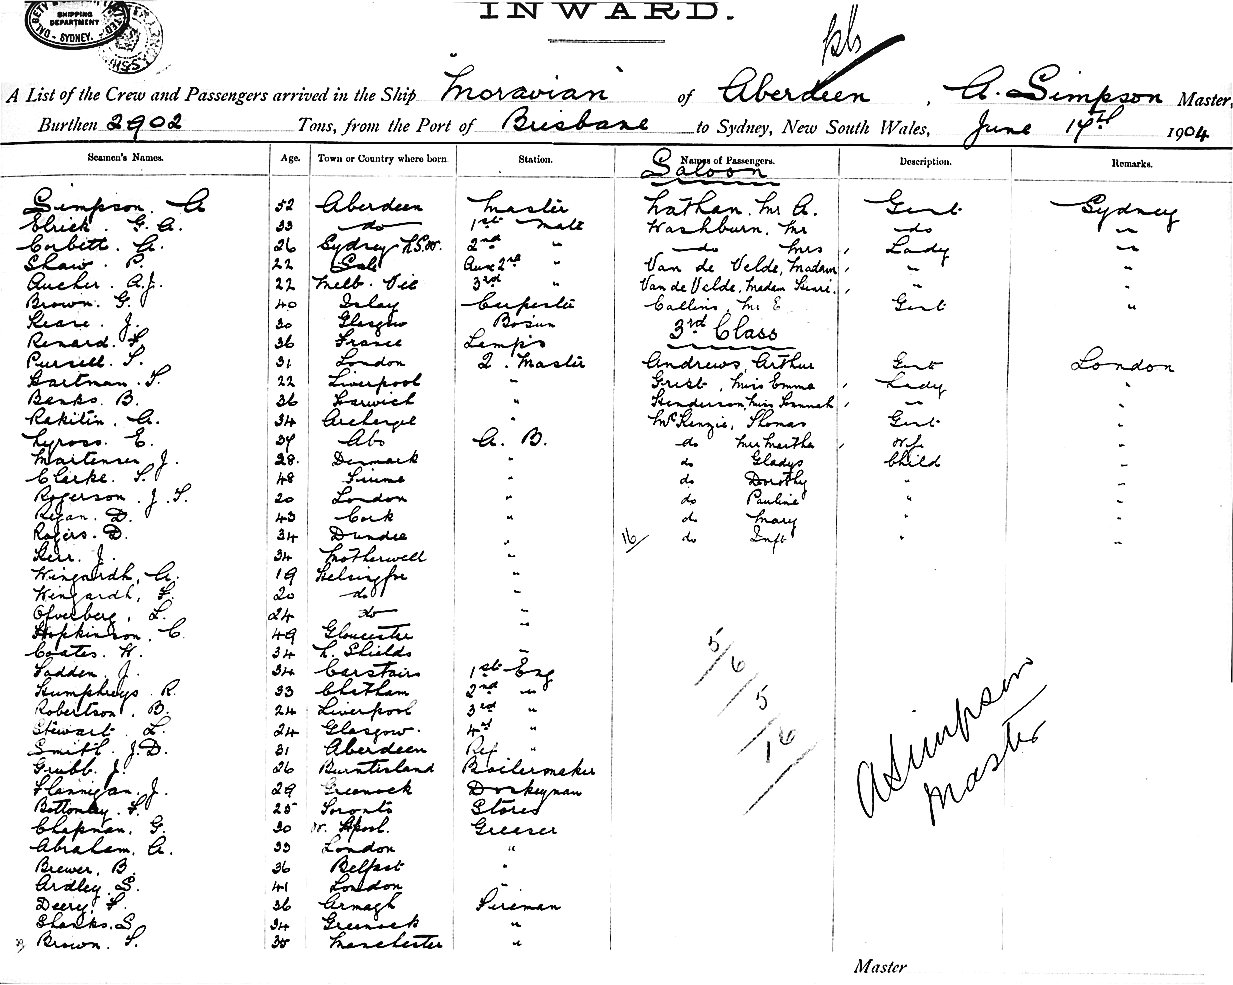 INWARD.
SHIPPING DEPARTMENT
SYDNEY.
A List of the Crew and Passengers arrived in the Ship "Moravian" of Aberdeen, A. Simpson Master,
Burthen 2902 Tons, from the Port of Brisbane to Sydney, New South Wales, June 14th 1904
Seamen's Names. Age. Town or Country where born Station. Names of Passengers. Description. Remarks.
Saloon
Simpson A 52 Aberdeen Master Nathan. Mr A. Gent Sydney
G. A. 33 do 1st Mate Washburn. Mr do "
Corbett. A. 26 Sydney N.S.W. 2nd " do Mrs Lady "
Shaw. P. 22 Aux 2nd " Van de Velde, Madam " "
Archer. A.J. 22 Melb. Vic 3rd " Van de Velde, Madam " "
Brown. G. 40 Islay Carpenter Mr E Gent "
J. 30 Glasgow Bosun 3rd Class
Renard. F. 36 France Lamps
Pursell. T. 31 London Q. Master Andrews, Arthur Gent London
Hartman. T. 22 Liverpool " Miss Emma Lady "
Banks. B. 36 Harwich " Henderson, Miss Hannah " "
Rakitin. A. 34 " McKenzie, Thomas Gent "
E. 34 Abo A. B. do Mrs Martha Wife "
Martensen J. 28 Denmark " do Gladys Child "
Clarke. T. 48 Fiume " do Dorothy " "
Rogerson. J. T. 20 London " do Pauline " "
Regan. D. 43 Cork " do Mary " "
Rogers. D. 34 Dundee " 16/ do Inft " "
Kerr. J. 34 Motherwell "
Wingardh, A. 19 "
Wingardh, F. 20 do "
L. 24 do "
Hopkinson, C. 49 Gloucester "
Coates. W. 34 N. Shields "
J. 34 Carstairs 1st Eng
Humphreys R. 33 Chatham 2nd "
Robertson. B. 24 Liverpool 3rd "
Stewart L. 24 Glasgow. 4th "
Smith. J.D. 31 Aberdeen Ref "
Grubb. J. 26 Burntisland Boilermaker
Flannigan. J. 29 Greenock Donkeyman
Bottomley. F. 25 Toronto Stores
Chapman. G. 30 Greaser
Abraham. A. 33 London "
Brewer. B. 36 Belfast "
Ardley. S. 41 London "
Deery. F. 36 Armagh Fireman
Shanks. S. 34 Greenock "
Brown. T. 35 Manchester "
5/6
5
16
A Simpson
Master
Master